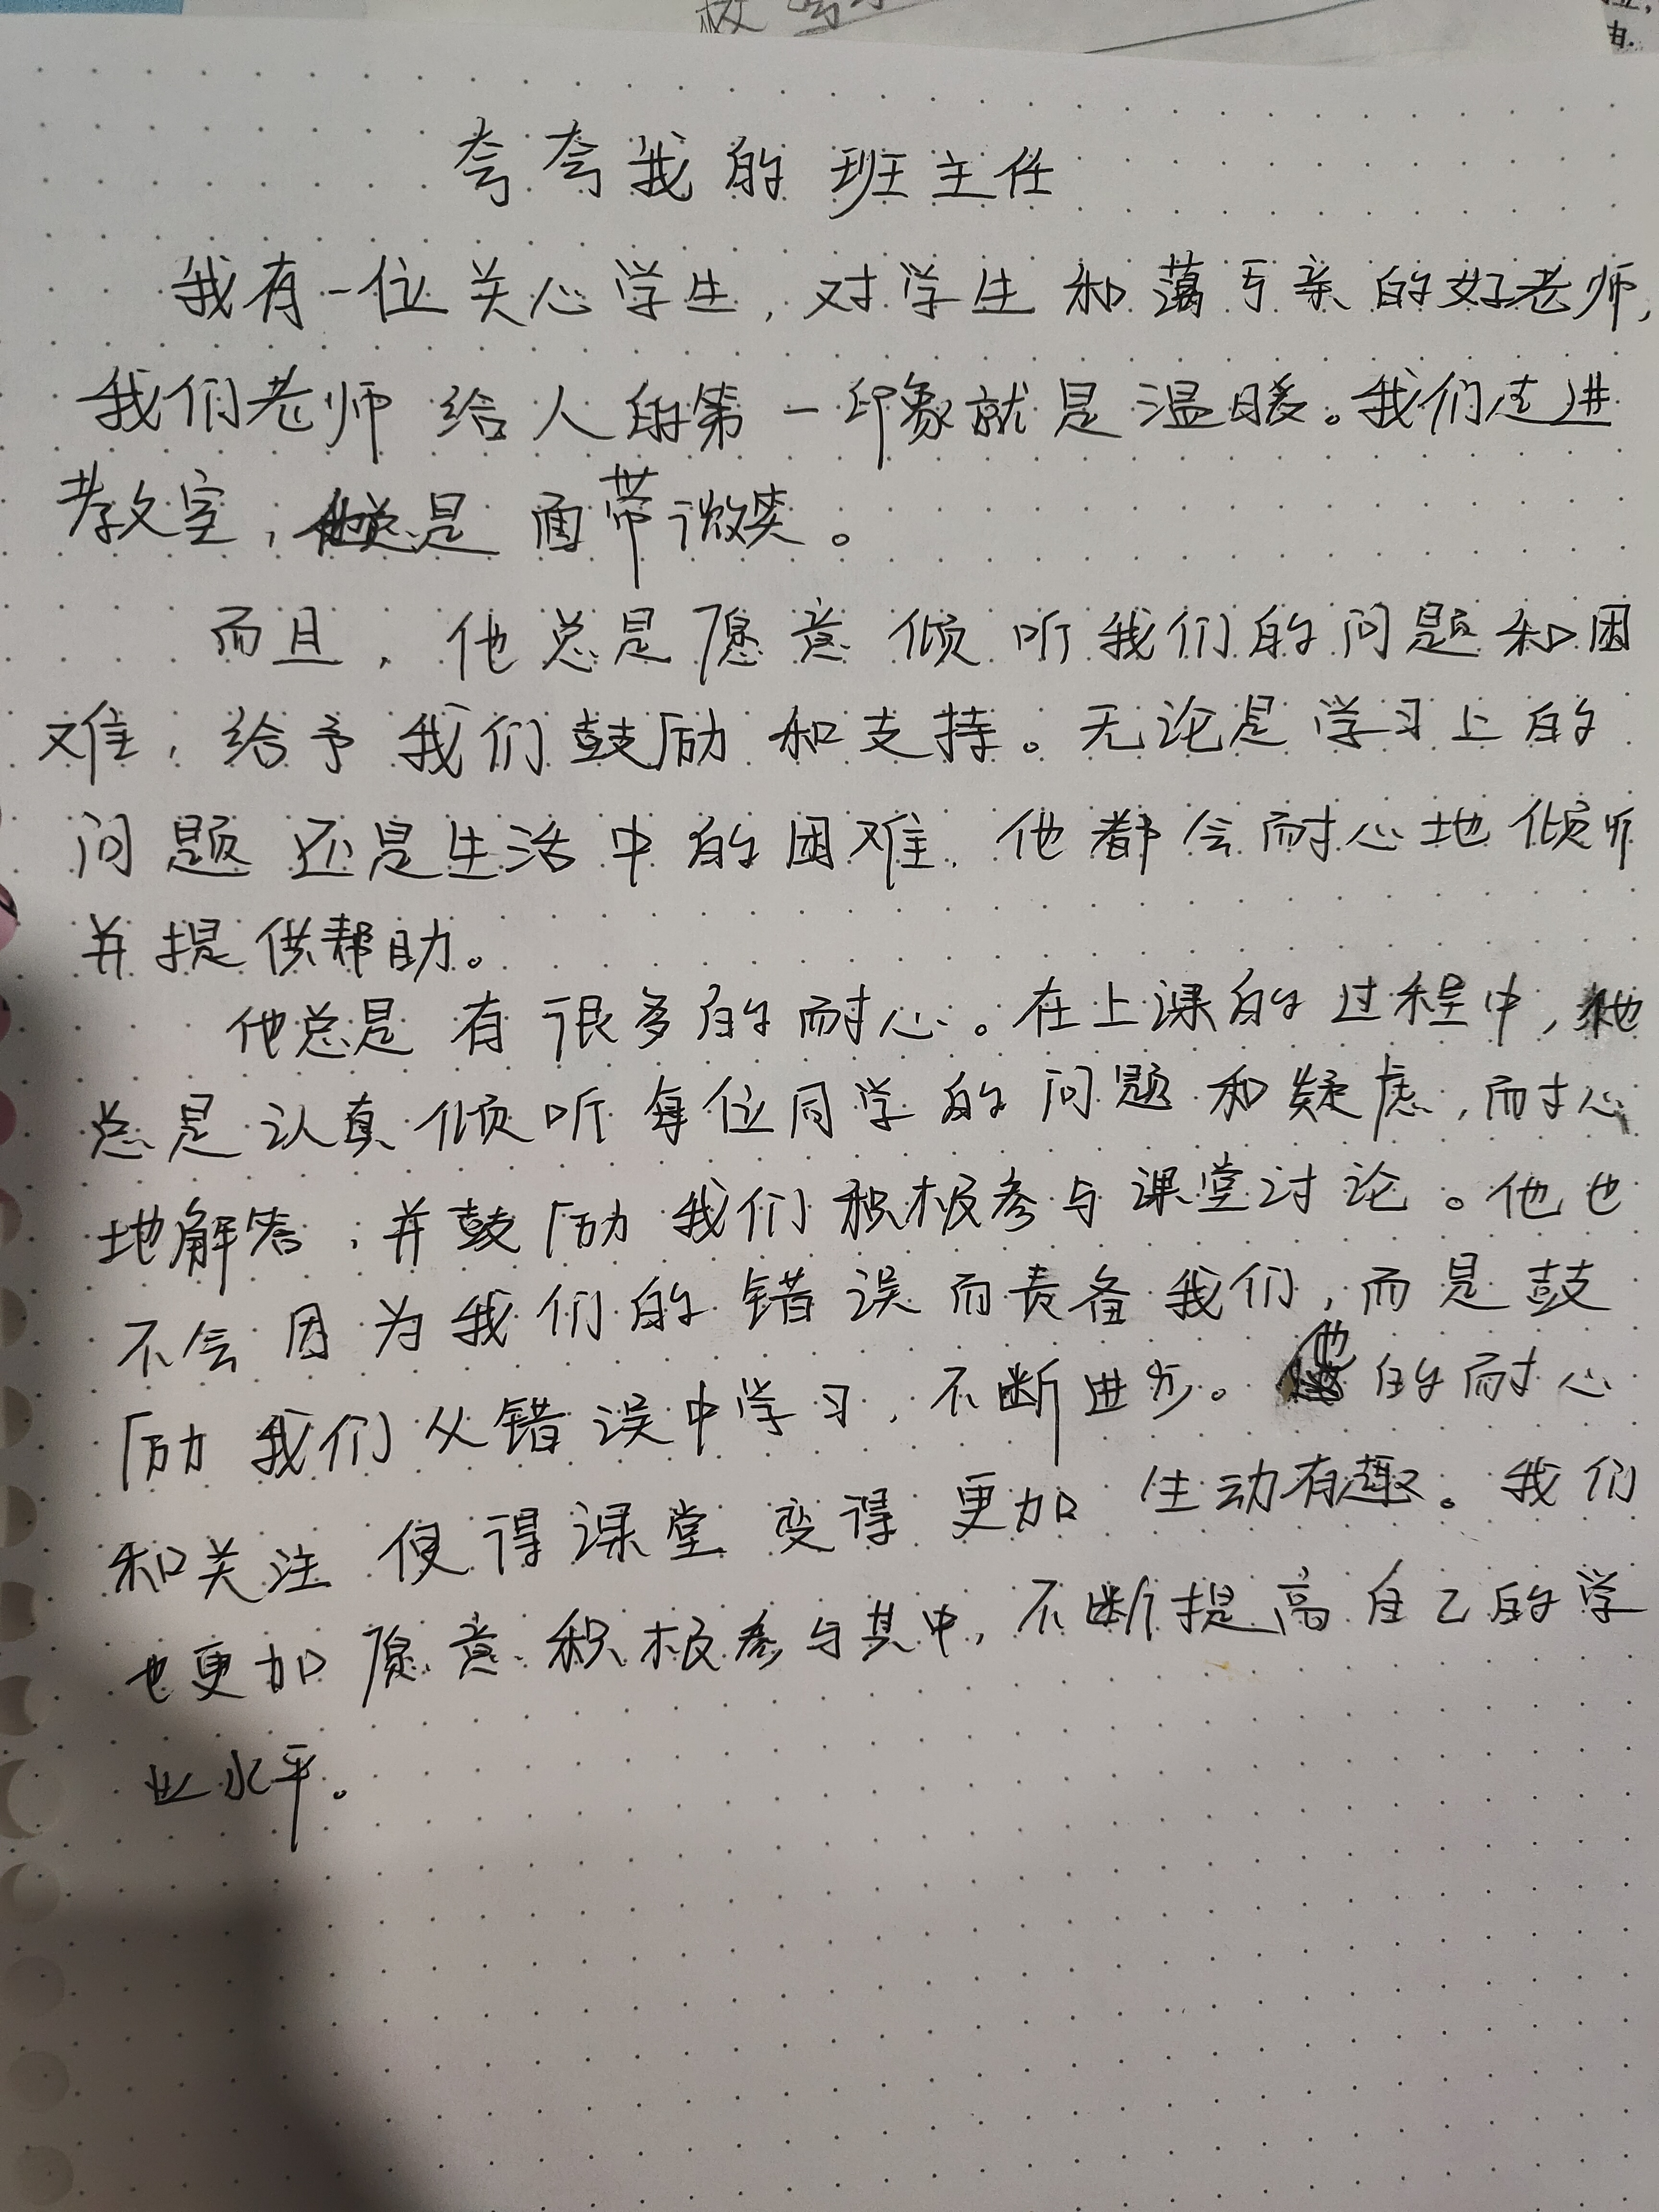 夸夸我的班主任
我有一位关心学生,对学生和蔼可亲的好老师,
我们老师给人的第一印象就是温暖。我们走进
教室,他总是面带微笑。
而且,他总是愿意倾听我们的问题和困
难,给予我们鼓励和支持。无论是学习上的
问题还是生活中的困难,他都会耐心地倾听
并提供帮助。
他总是有很多的耐心。在上课的过程中,他
总是认真倾听每位同学的问题和疑虑,耐心
地解答,并鼓励我们积极参与课堂讨论。他也
不会因为我们的错误而责备我们,而是鼓
励我们从错误中学习,不断进步。他的耐心
和关注使得课堂变得更加生动有趣。我们
也更加愿意积极参与其中,不断提高自己的学
业水平。